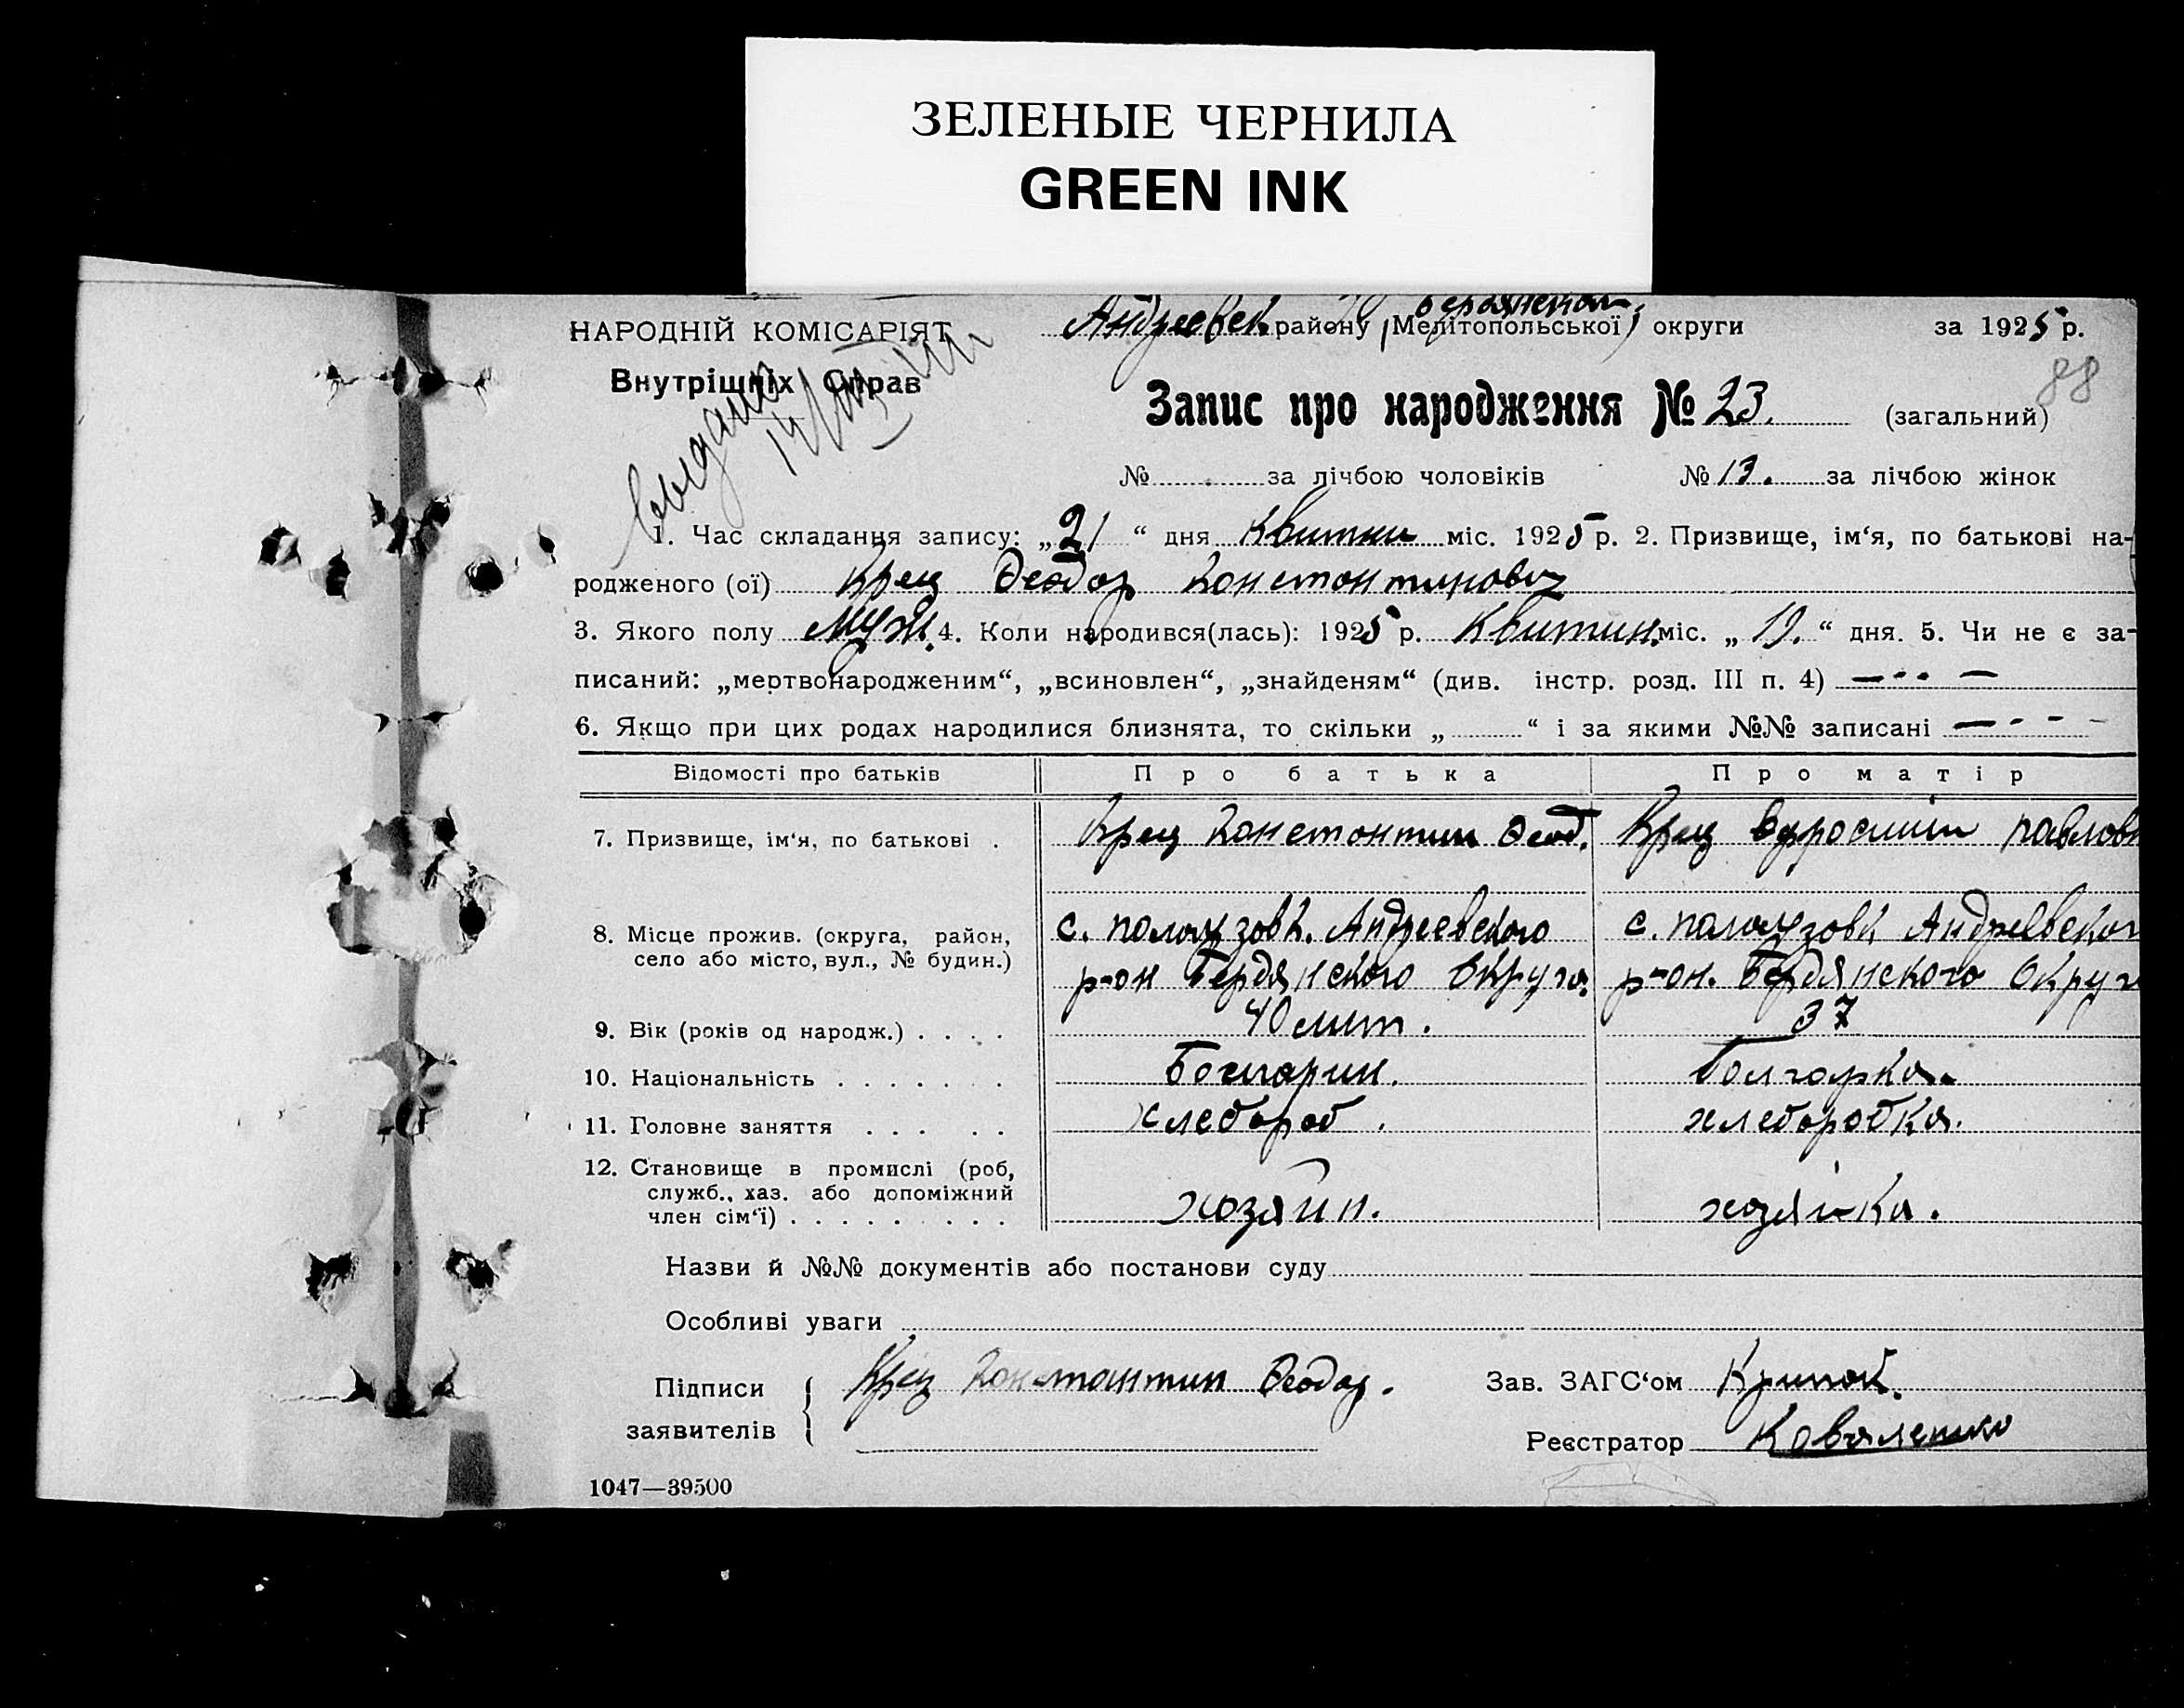 ЗЕЛЕНЫЕ ЧЕРНИЛА
GREEN INK
НАРОДНІЙ КОМІСАРІЯТ
Внутрішніх Справ
Андреевск. району (Мелітопольської) округи за 1925 р.
88
Запис про народження № 23. (загальний)
№ за лічбою чоловіків № 13. за лічбою жінок
1. Час складання запису: „21“ дня Квитни міс. 1925 р. 2. Призвище, ім‘я, по батькові на-
родженого (ої) Крец Феодор Константинович
3. Якого полу муж. 4. Коли народився(лась): 1925 р. Квитни. міс. „19.“ дня. 5. Чи не є за-
писаний: „мертвонародженим“, „всиновлен“, „знайденям“ (див. інстр. розд. III п. 4)
6. Якщо при цих родах народилися близнята, то скільки „ “ і за якими №№ записані
Відомості про батьків Про батька Про матір
7. Призвище, ім‘я, по батькові . Крец Констонтин Феод. Крец павловн
8. Місце прожив. (округа, район, с. Андреевского с. Андреевског
село або місто, вул., № будин.) р-он Бердянского Округа. р-он. Бердянского Округ
9. Вік (років од народж.) . . . . 40 лит. 37
10. Національність . . . . . . . Болгарин. Болгарка.
11. Головне заняття . . . . . хлебороб. хлеборобка.
12. Становище в промислі (роб,
служб., хаз. або допоміжний
член сім‘ї) . . . . . . . . . хозяин. хозяйка.
Назви й №№ документів або постанови суду
Особливі уваги
Підписи Крец Константин Феодор. Зав. ЗАГС‘ом
заявителів Реєстратор Коваленко
1047—39500